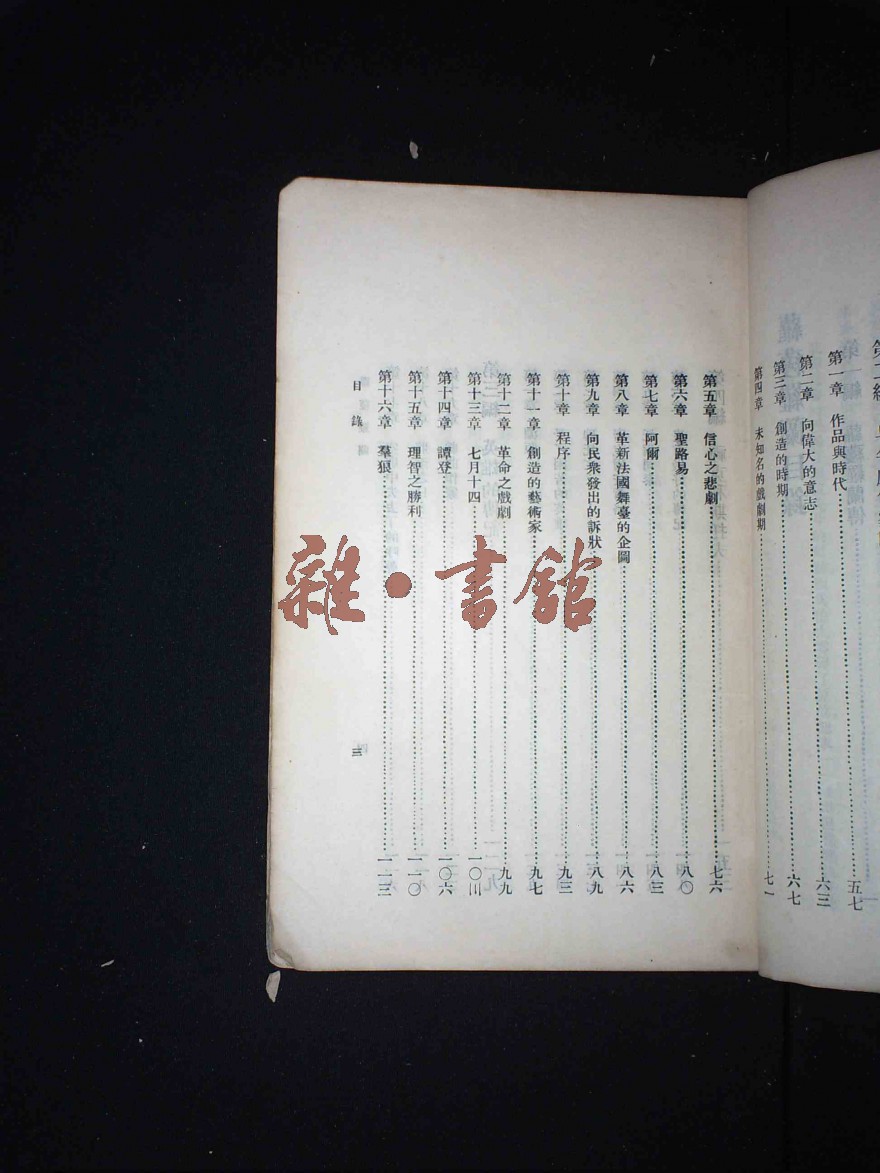 第一章 作品與時代⋯⋯五七
第二章 向偉大的意志⋯⋯六三
第三章 創造的時期⋯⋯六七
第四章 未知名的戲劇期⋯⋯七一
第五章 信心之悲劇⋯⋯七六
第六章 聖路易⋯⋯八〇
第七章 阿爾⋯⋯八三
第八章 革新法國舞臺的企圖⋯⋯八六
第九章 向民衆發出的訴狀⋯⋯八九
第十章 程序⋯⋯九三
第十一章 創造的藝術家⋯⋯九七
第十二章 革命之戲劇⋯⋯九九
第十三章 七月十四⋯⋯一〇三
第十四章 譚登⋯⋯一〇六
第十五章 理智之勝利⋯⋯一一〇
第十六章 羣狼⋯⋯一一三
目錄 三
雜·書館